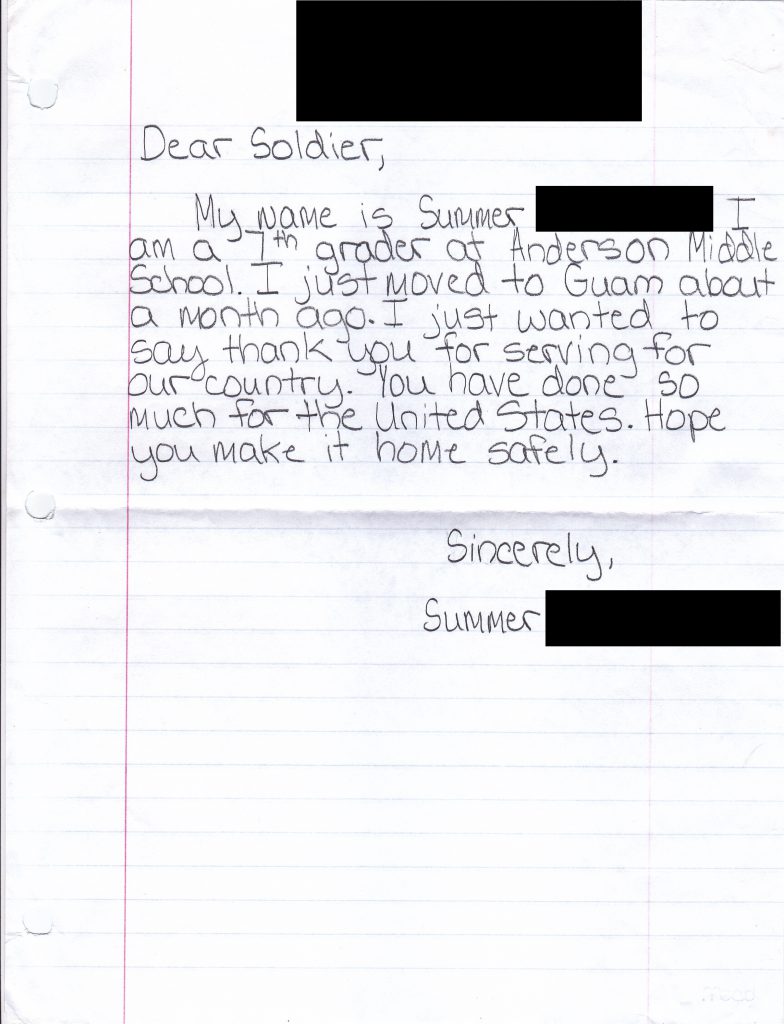 Dear Soldier,
My name is Summer I
am a 7th grader at Anderson Middle
School. I just moved to Guam about
a month ago. I just wanted to
say thank you for serving for
our country. You have done so
much for the United States. Hope
you make it home safely.
Sincerely,
Summer